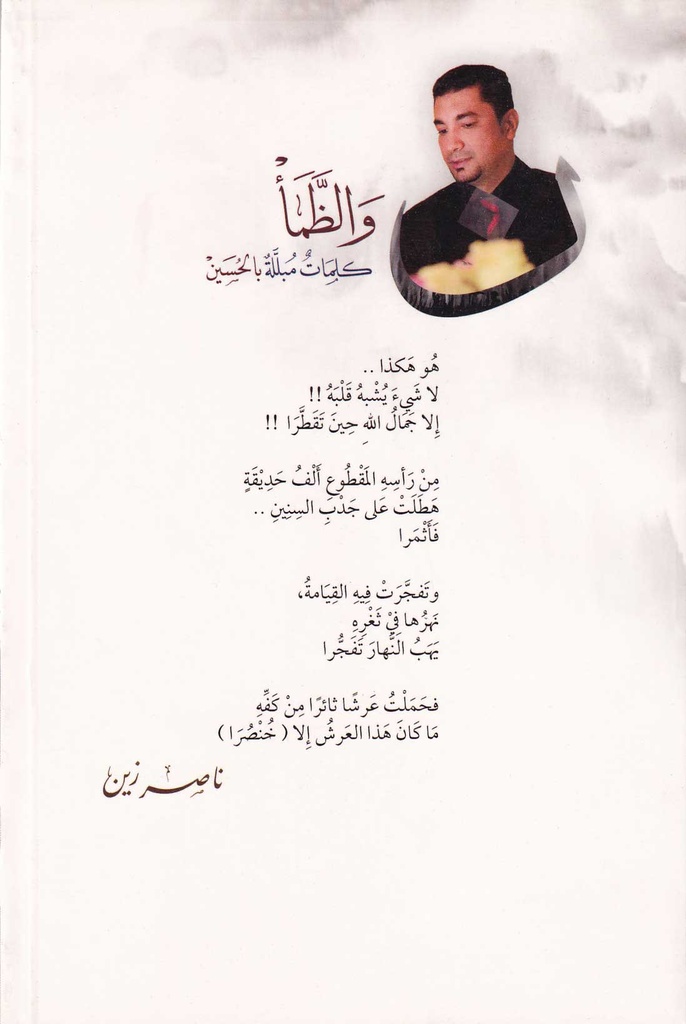 وَالظَّمَأْ
كَلِمَاتٌ مُبَلَّلَةٌ بِالحُسَيْنْ
هُو هَكذا ..
لا شَيءَ يُشْبهُ قَلْبَهُ !!
إِلا جَمَالُ اللهِ حِينَ تَقَطَّرَا !!
مِنْ رَأسِهِ المَقْطُوعِ أَلْفُ حَدِيْقَةٍ
هَطَلَتْ عَلى جَدْبِ السِنِينِ ..
فَأَثْمَرا
وتَفجَّرَتْ فِيهِ القِيَامةُ،
نَهرُها فِيْ ثَغْرِهِ
يَهَبُ النَّهارَ تَفَجُّرا
فحَمَلْتُ عَرشًا ثائرًا مِنْ كَفِّهِ
مَا كَانَ هَذا العَرشُ إِلا ( خُنْصُرَا )
ناصر زين